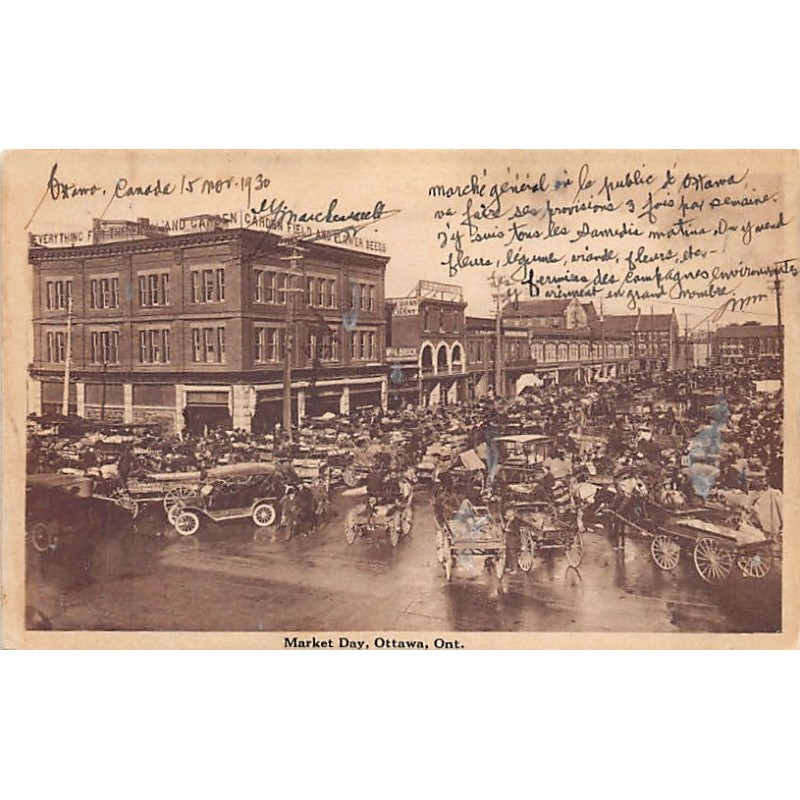 Ottawa, Canada 15 nov-1930
marché général où le public d'Ottawa,
va faire ses provisions 3 fois par semaine.
J'y suis tous les Samedis matins. On y vend
fleurs, légume, viande, fleurs, etc.-
Les fermiers des campagnes environnants
viennent en grand nombre.
EVERYTHING FOR THE AND GARDEN
GARDEN FIELD AND FLOWER SEEDS
Market Day, Ottawa, Ont.